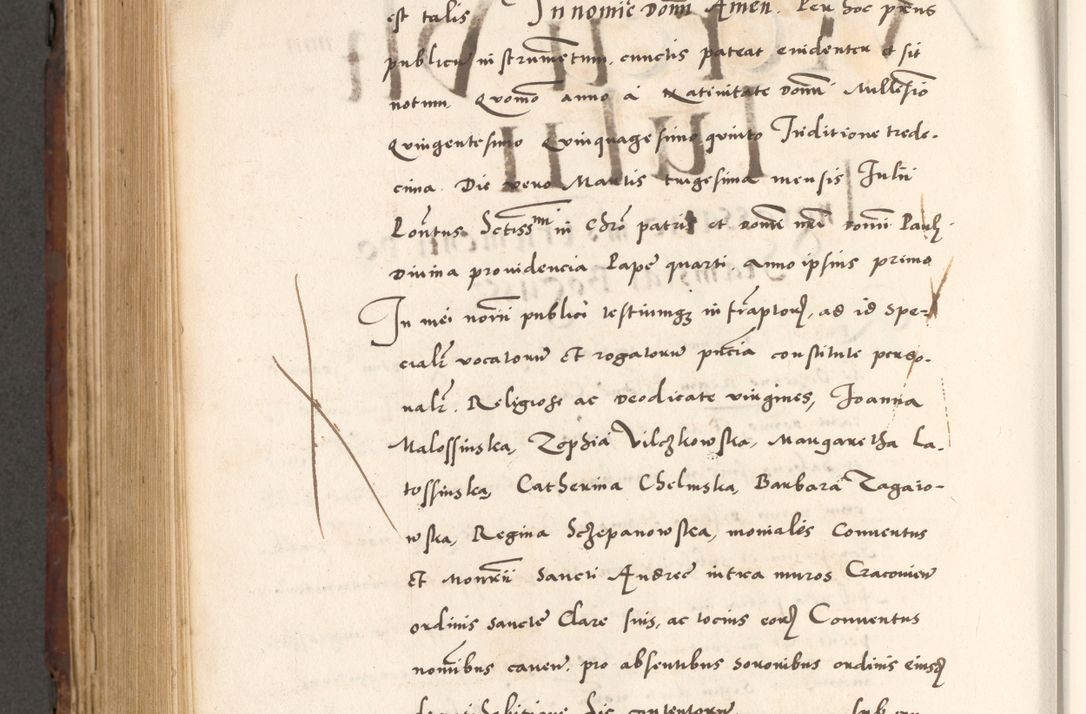 est talis In nomie Domi Amen. Per hoc pñs
publicu instrumetum, cunctis pateat euidenter et sit
notum Quomo anno a Natiuitate Domi Millesio
Quingentesimo Quinquagesimo quinto Inditione trede-
cima Die vero Martis trigesima mensis Iulii
Pontus. Sctissmi in Chro patris et domi nri domi Pauli
Diuina prouidencia Pape quarti anno ipsius primo
In mei notrii publici testiumq infraptor, ad id spe-
cialr vocatorum et rogatorum pncia constitute perso-
nalr. Religiose ac Deodicate virgines, Joanna
Malossinska, Zophia Vilczkowska, Margaretha La-
tossinska, Catherina Chelmska, Barbara Zagaio-
wska, Regina Sczepanowska, moniales Conuentus
et Monrii Sancti Andree intra muros Cracouien
ordinis Sancte Clare suis, ac tocius eor Conuentus
nomibus cauen. pro absentibus sororibus ordinis eiusd